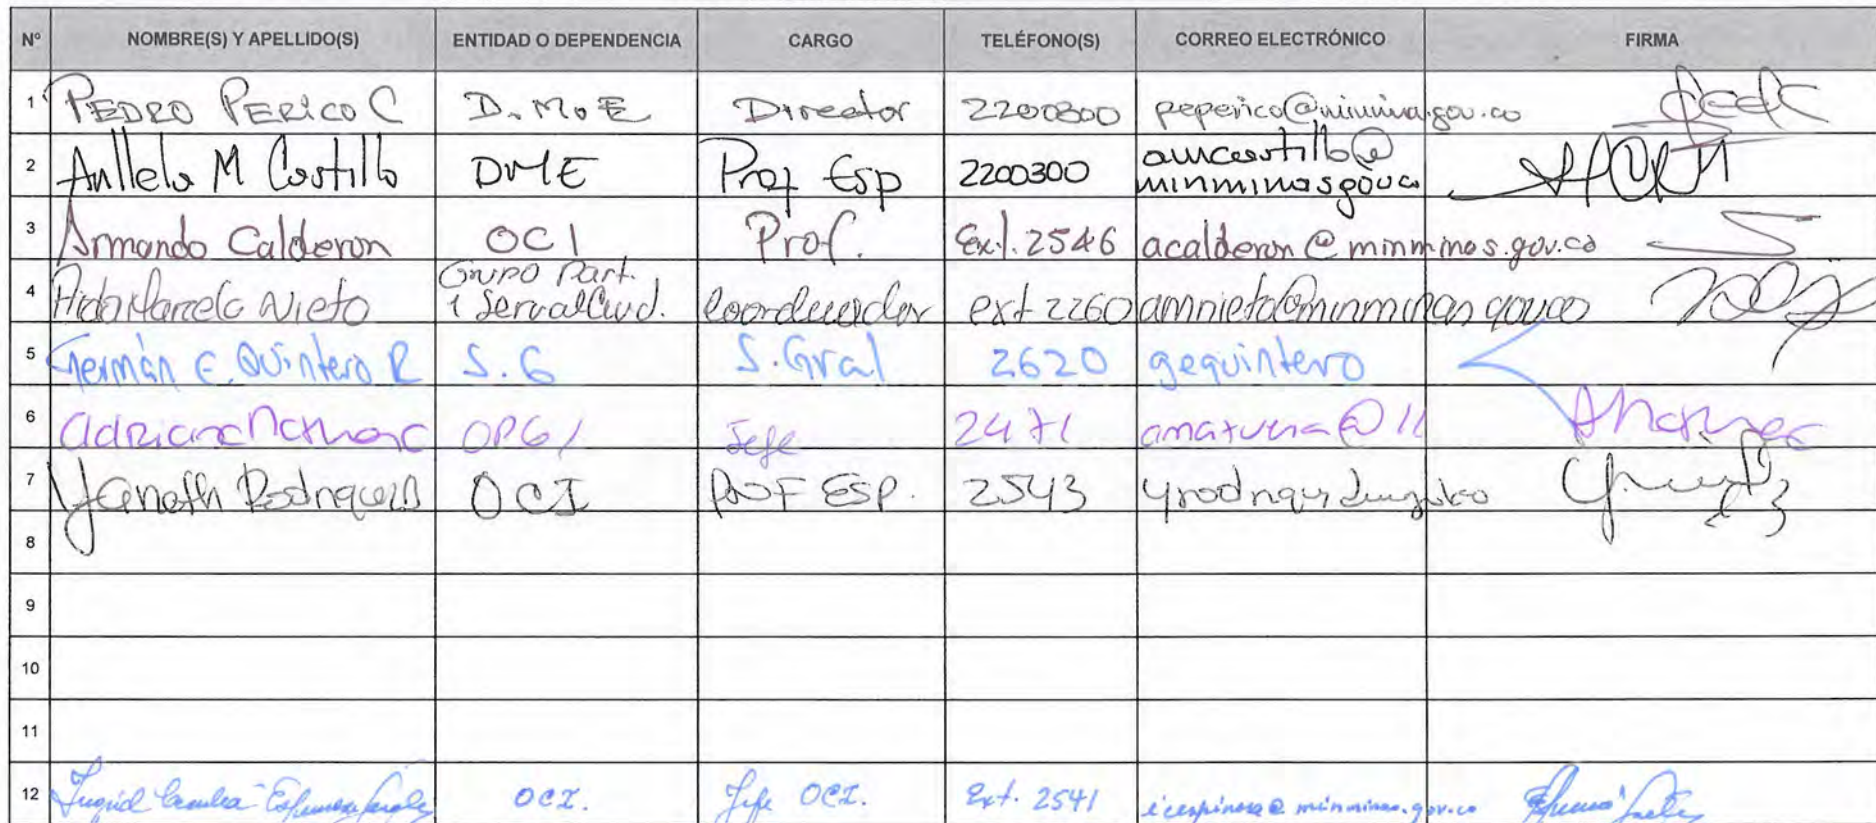 Nº NOMBRE(S) Y APELLIDO(S) ENTIDAD O DEPENDENCIA CARGO TELÉFONO(S) CORREO ELECTRÓNICO FIRMA
1 PEDRO PERICO C D.M.E Director 2200300
2 Anllela M Castillo DME Prof Esp 2200300 amcastillo@
minminas.gov.co
3 Armando Calderon OCI Prof. Ext. 2546 acalderon@minminas.gov.co
Grupo Part.
4 Nieto Coordinador ext 2260 amnieto@minminas.gov.co
5 Germán E. Quintero R S.G S.Gral 2620 gequintero
6 Adriana OPGI Jefe 2471
7 Yaneth Rodriguez OCI PROF ESP. 2543
8
9
10
11
12 Ingrid OCI. Jefe OCI. Ext. 2541 icespinosa@minminas.gov.co